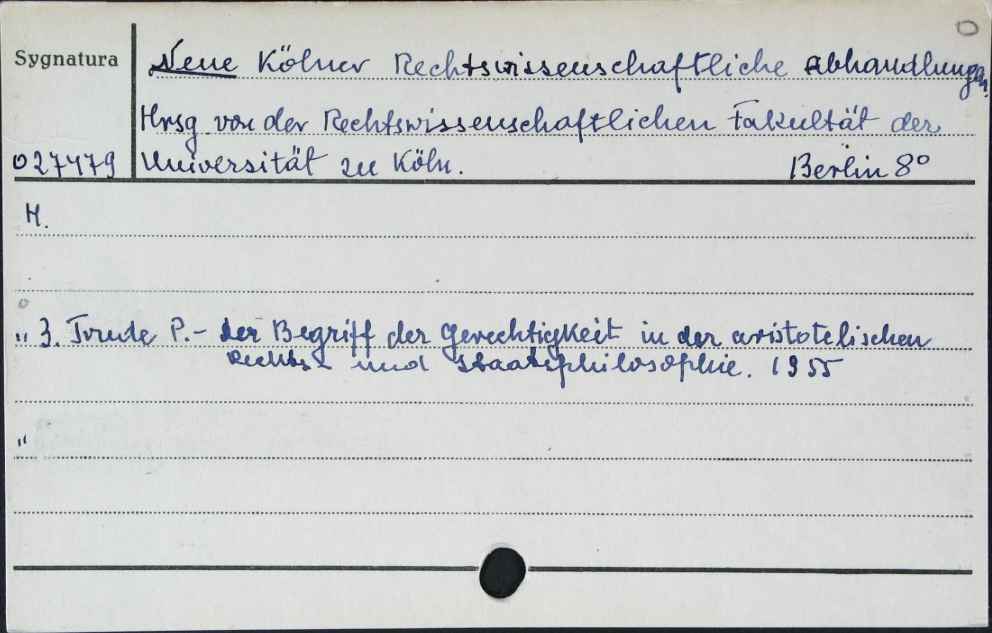 0
Sygnatura
Neue Kölner Rechtswissenschaftliche Abhandlungen.
Hrsg von der Rechtswissenschaftlichen Fakultät der
027479 Universität zu Köln. Berlin 8°
H.
" 3. Trude P.- Der Begriff der Gerechtigkeit in der aristotelischen
Rechts- und Staatsphilosophie. 1955
"